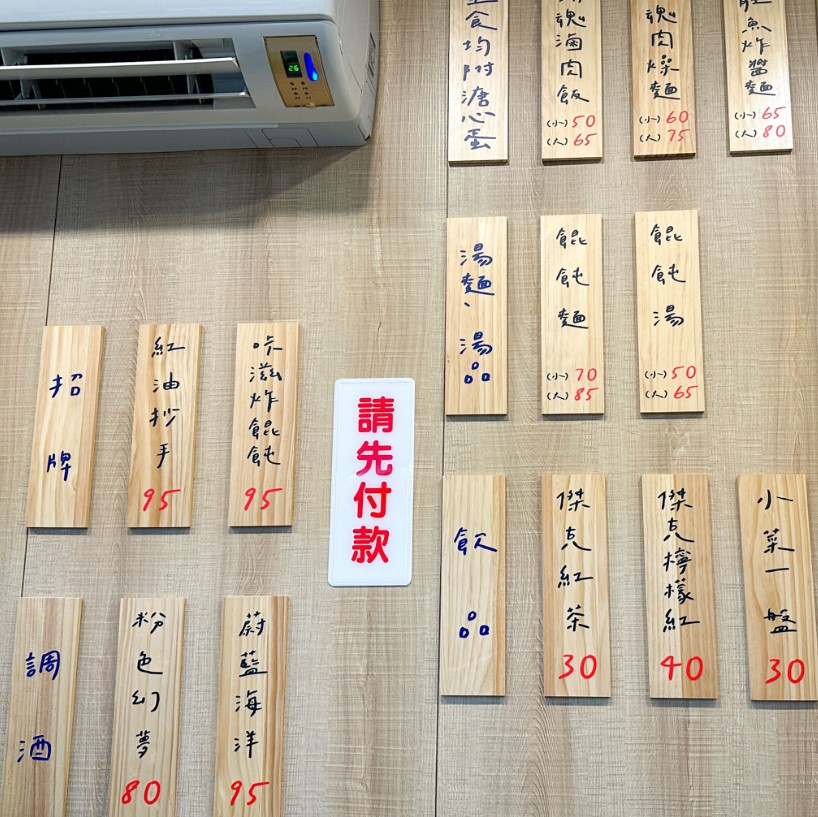 食均附溏心蛋
魂滷肉飯
(小)50
(大)65
魂肉燥麵
(小)60
(大)75
魚炸醬麵
(小)65
(大)80
湯麵、湯品
餛飩麵
(小)70
(大)85
餛飩湯
(小)50
(大)65
招牌
紅油抄手
95
咔滋炸餛飩
95
請先付款
飲品
傑克紅茶
30
傑克檸檬紅
40
小菜一盤
30
調酒
粉色幻夢
80
蔚藍海洋
95
26